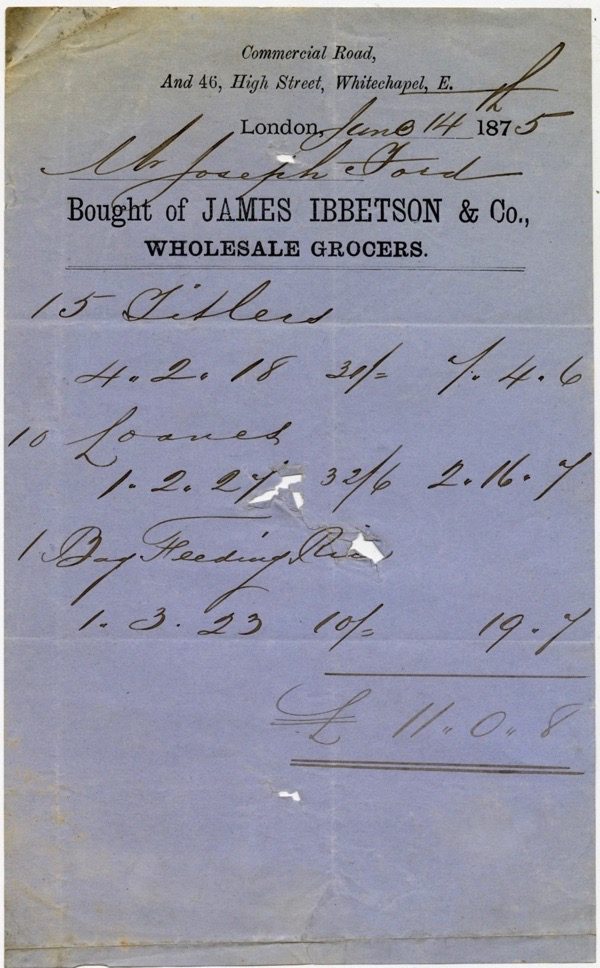 Commercial Road,
And 46, High Street, Whitechapel, E.
London, June 14th 1875
Mr Joseph Ford
Bought of JAMES IBBETSON & Co.,
WHOLESALE GROCERS.
15 Titlers
4 " 2 " 18 31/= 7 " 4 " 6
10 Loaves
1 " 2 " 27 32/6 2 " 16 " 7
1 Bag Feeding Rice
1 " 3 " 23 10/= 19 " 7
£ 11 " 0 " 8